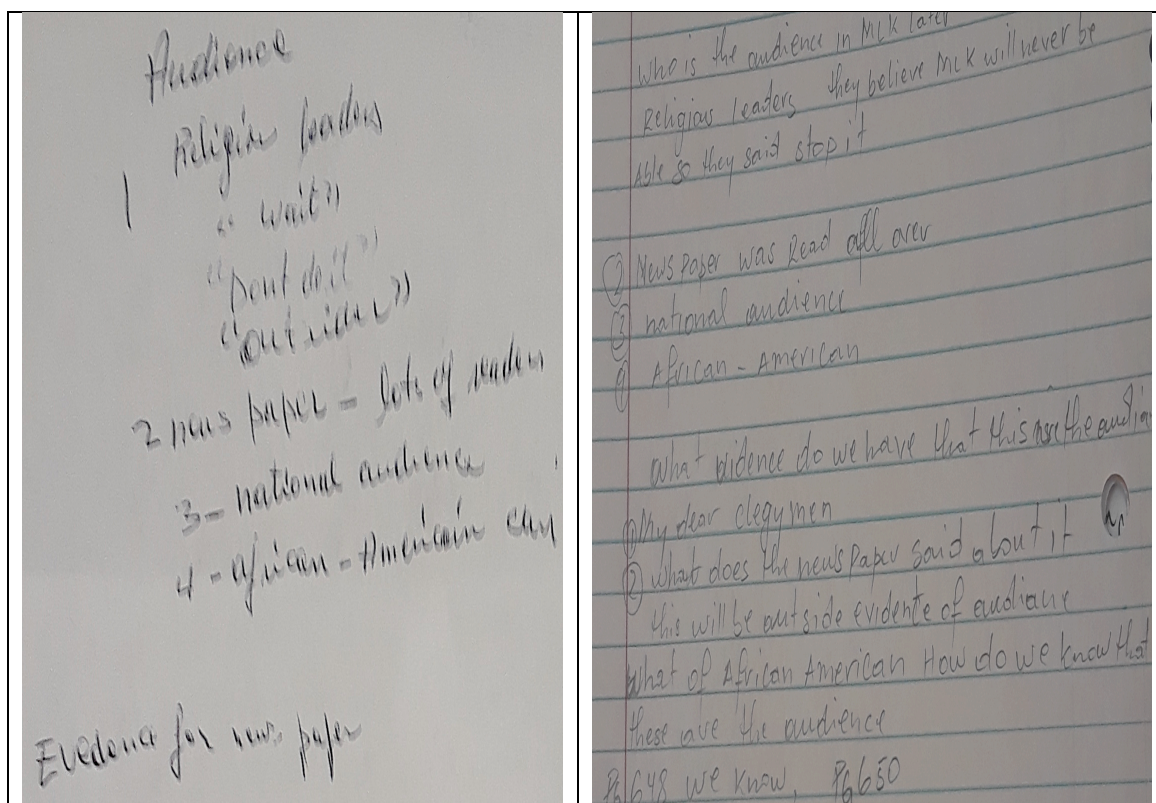 Audience
Religion leaders
1
" wait"
"Dont do it"
"outsider"
2 news paper - lots of readers
3 - national audience
4 - african - American
Evedence for news paper
who is the audience in MLK later
Religious leaders they believe MLK will never be
Able so they said stop it
② News Paper was Read all over
③ national audience
African - American
What evidence do we have that this are the
① My dear clegymen
② What does the news paper said about it
this will be outside evidente of audiane
What of African American How do we know that
these are the audience
Pg 648 we know, Pg 650